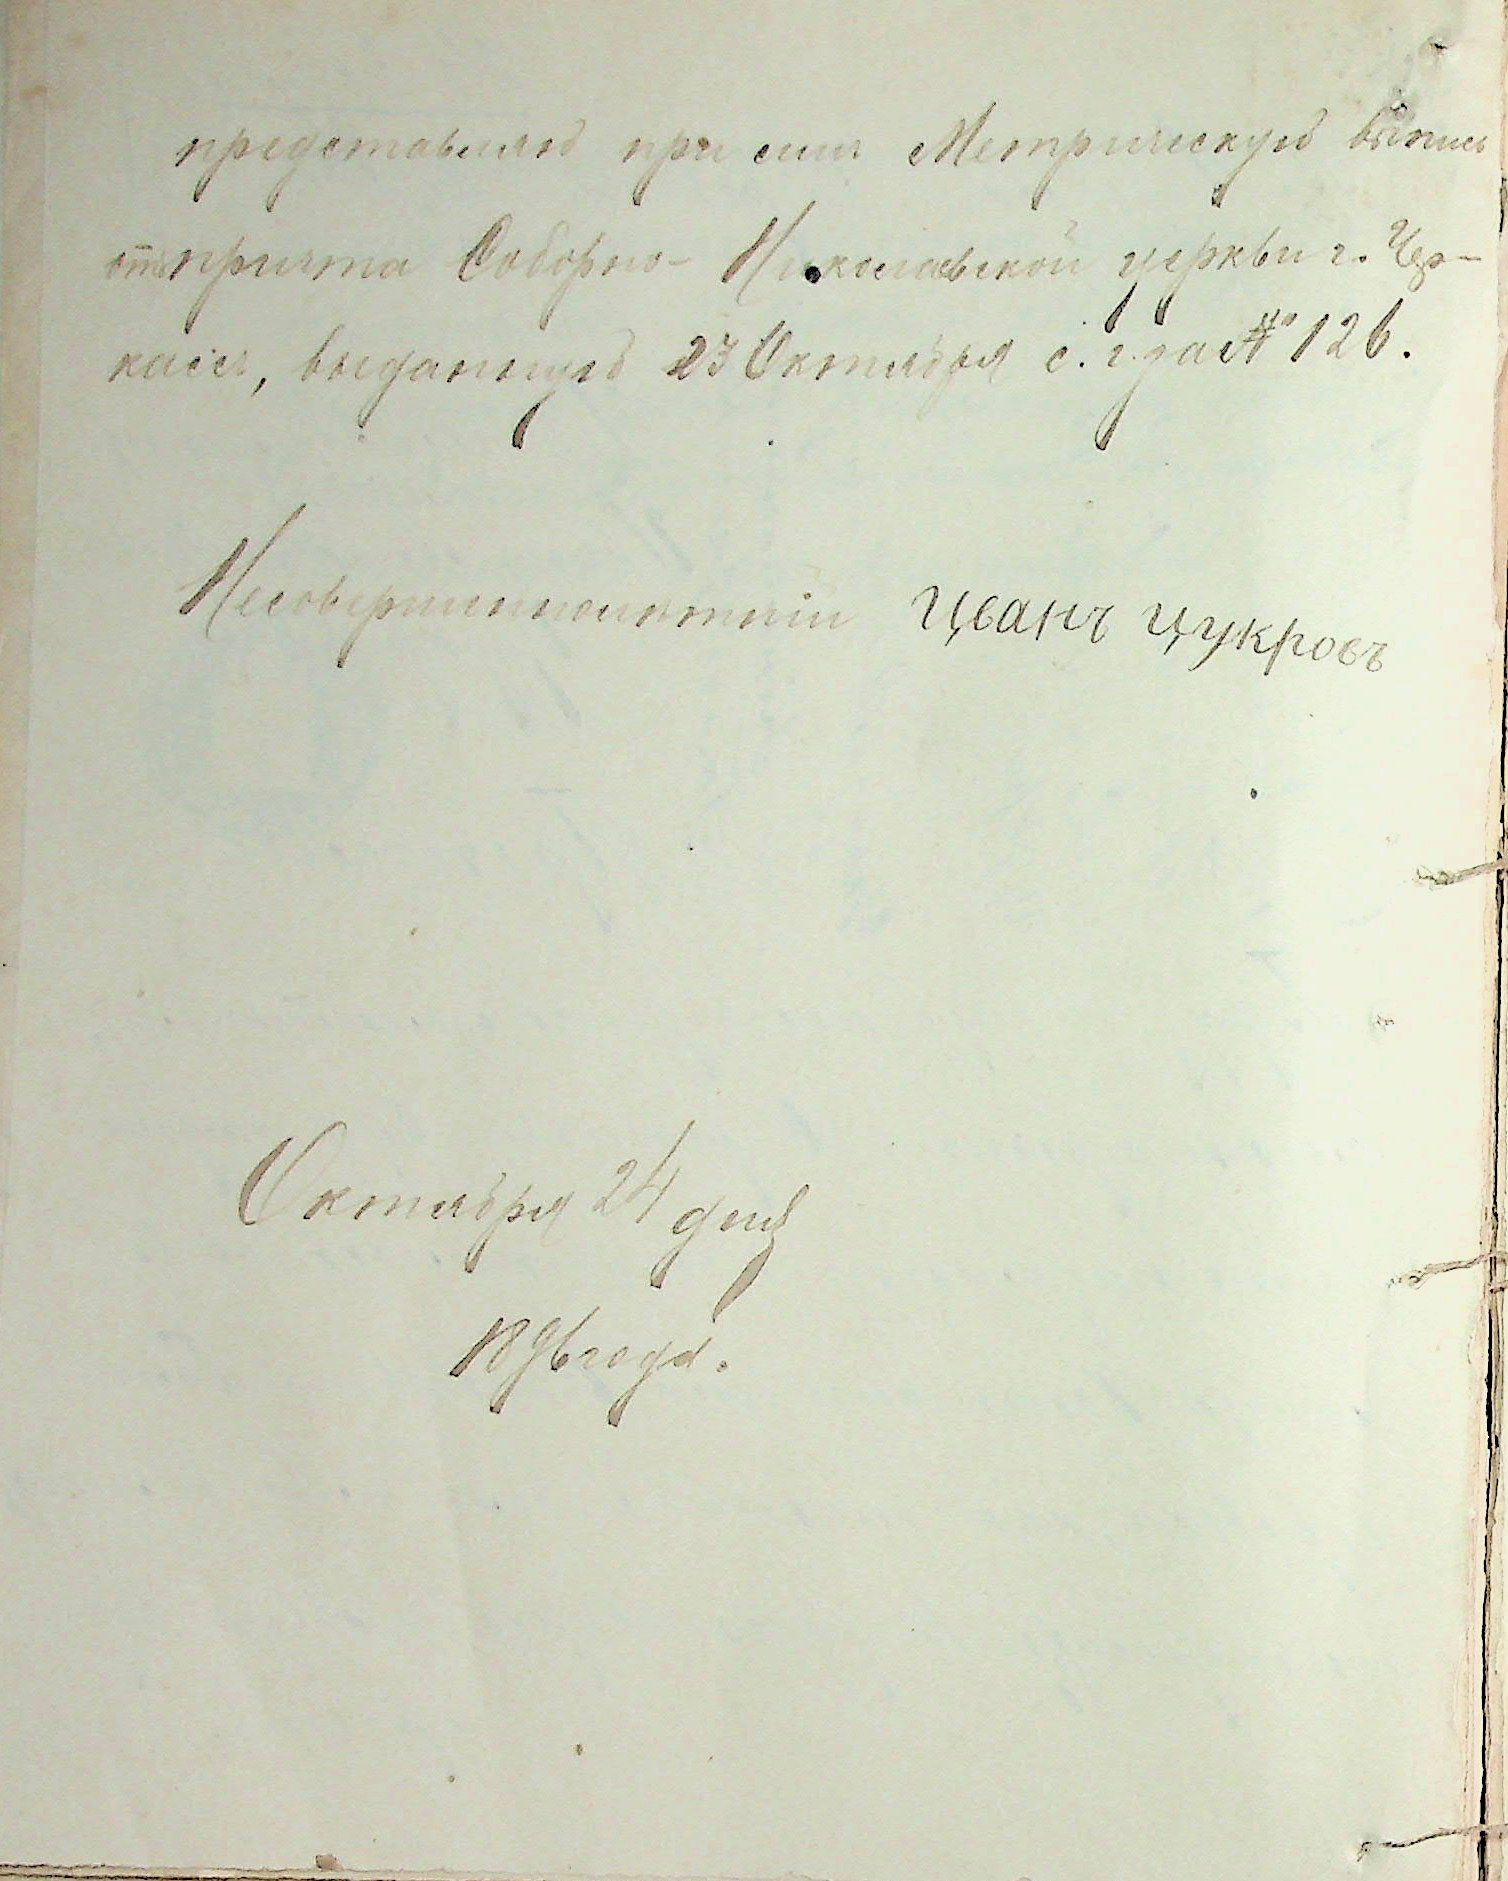 представляю при семъ Метрическую выпись
отъ причта Соборно-Николаевской церкви г. Чер-
кассъ, выданную 23 Октября с. г. за № 126.
Несовершеннолѣтній Иванъ Цукровъ
Октября 24 дня
1896 года.